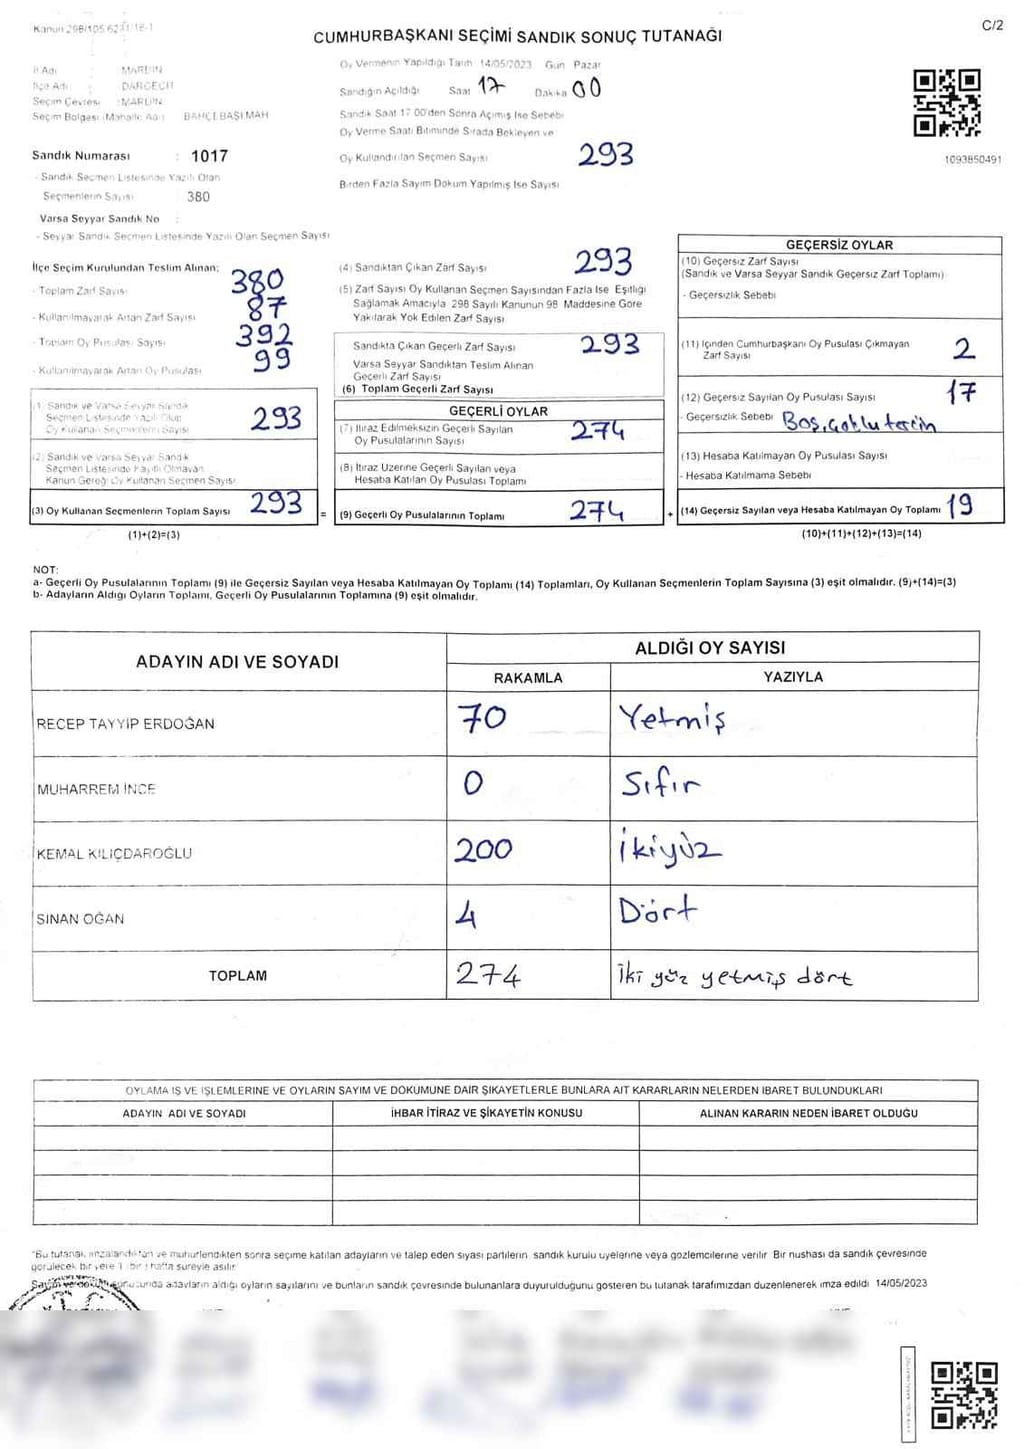 Kanun 298/105 6271/18-1
C/2
CUMHURBAŞKANI SEÇİMİ SANDIK SONUÇ TUTANAĞI
İl Adı : MARDİN
İlçe Adı : DARGEÇİT
Seçim Çevresi : MARDİN
Seçim Bölgesi (Mahalle Adı) BAHÇEBAŞI MAH
Sandık Numarası : 1017
- Sandık Seçmen Listesinde Yazılı Olan
Seçmenlerin Sayısı 380
Varsa Seyyar Sandık No :
- Seyyar Sandık Seçmen Listesinde Yazılı Olan Seçmen Sayısı
Oy Vermenin Yapıldığı Tarih 14/05/2023 Gün Pazar
Sandığın Açıldığı Saat 17 Dakika 00
Sandık Saat 17 00'den Sonra Açılmış İse Sebebi
Oy Verme Saati Bitiminde Sırada Bekleyen ve
Oy Kullandırılan Seçmen Sayısı 293
Birden Fazla Sayım Döküm Yapılmış İse Sayısı
1093850491
İlçe Seçim Kurulundan Teslim Alınan;
- Toplam Zarf Sayısı 380
- Kullanılmayarak Artan Zarf Sayısı 87
- Toplam Oy Pusulası Sayısı 392
- Kullanılmayarak Artan Oy Pusulası 99
(1) Sandık ve Varsa Seyyar Sandık
Seçmen Listesinde Yazılı Olup
Oy Kullanan Seçmenlerin Sayısı 293
(2) Sandık ve Varsa Seyyar Sandık
Seçmen Listesinde Kayıtlı Olmayan
Kanun Gereği Oy Kullanan Seçmen Sayısı
(3) Oy Kullanan Seçmenlerin Toplam Sayısı 293 =
(1)+(2)=(3)
(4) Sandıktan Çıkan Zarf Sayısı 293
(5) Zarf Sayısı Oy Kullanan Seçmen Sayısından Fazla İse Eşitliği
Sağlamak Amacıyla 298 Sayılı Kanunun 98 Maddesine Göre
Yakılarak Yok Edilen Zarf Sayısı
Sandıkta Çıkan Geçerli Zarf Sayısı 293
Varsa Seyyar Sandıktan Teslim Alınan
Geçerli Zarf Sayısı
(6) Toplam Geçerli Zarf Sayısı
GEÇERLİ OYLAR
(7) İtiraz Edilmeksizin Geçerli Sayılan
Oy Pusulalarının Sayısı 274
(8) İtiraz Üzerine Geçerli Sayılan veya
Hesaba Katılan Oy Pusulası Toplamı
(9) Geçerli Oy Pusulalarının Toplamı 274 +
GEÇERSİZ OYLAR
(10) Geçersiz Zarf Sayısı
(Sandık ve Varsa Seyyar Sandık Geçersiz Zarf Toplamı)
- Geçersizlik Sebebi
(11) İçinden Cumhurbaşkanı Oy Pusulası Çıkmayan
Zarf Sayısı 2
(12) Geçersiz Sayılan Oy Pusulası Sayısı 17
- Geçersizlik Sebebi Boş, çoklu tercih
(13) Hesaba Katılmayan Oy Pusulası Sayısı
- Hesaba Katılmama Sebebi
(14) Geçersiz Sayılan veya Hesaba Katılmayan Oy Toplamı 19
(10)+(11)+(12)+(13)=(14)
NOT:
a- Geçerli Oy Pusulalarının Toplamı (9) ile Geçersiz Sayılan veya Hesaba Katılmayan Oy Toplamı (14) Toplamları, Oy Kullanan Seçmenlerin Toplam Sayısına (3) eşit olmalıdır. (9)+(14)=(3)
b- Adayların Aldığı Oyların Toplamı, Geçerli Oy Pusulalarının Toplamına (9) eşit olmalıdır.
ADAYIN ADI VE SOYADI
ALDIĞI OY SAYISI
RAKAMLA YAZIYLA
RECEP TAYYİP ERDOĞAN 70 Yetmiş
MUHARREM İNCE 0 Sıfır
KEMAL KILIÇDAROĞLU 200 İkiyüz
SİNAN OĞAN 4 Dört
TOPLAM 274 İki yüz yetmiş dört
OYLAMA İŞ VE İŞLEMLERİNE VE OYLARIN SAYIM VE DÖKÜMÜNE DAİR ŞİKAYETLERLE BUNLARA AİT KARARLARIN NELERDEN İBARET BULUNDUKLARI
ADAYIN ADI VE SOYADI İHBAR İTİRAZ VE ŞİKAYETİN KONUSU ALINAN KARARIN NEDEN İBARET OLDUĞU
*Bu tutanak imzalandıktan ve mühürlendikten sonra seçime katılan adayların ve talep eden siyasi partilerin sandık kurulu üyelerine veya gözlemcilerine verilir Bir nüshası da sandık çevresinde
görülecek bir yere 1 bir hafta süreyle asılır
adayların aldığı oyların sayılarını ve bunların sandık çevresinde bulunanlara duyurulduğunu gösteren bu tutanak tarafımızdan düzenlenerek imza edildi 14/05/2023